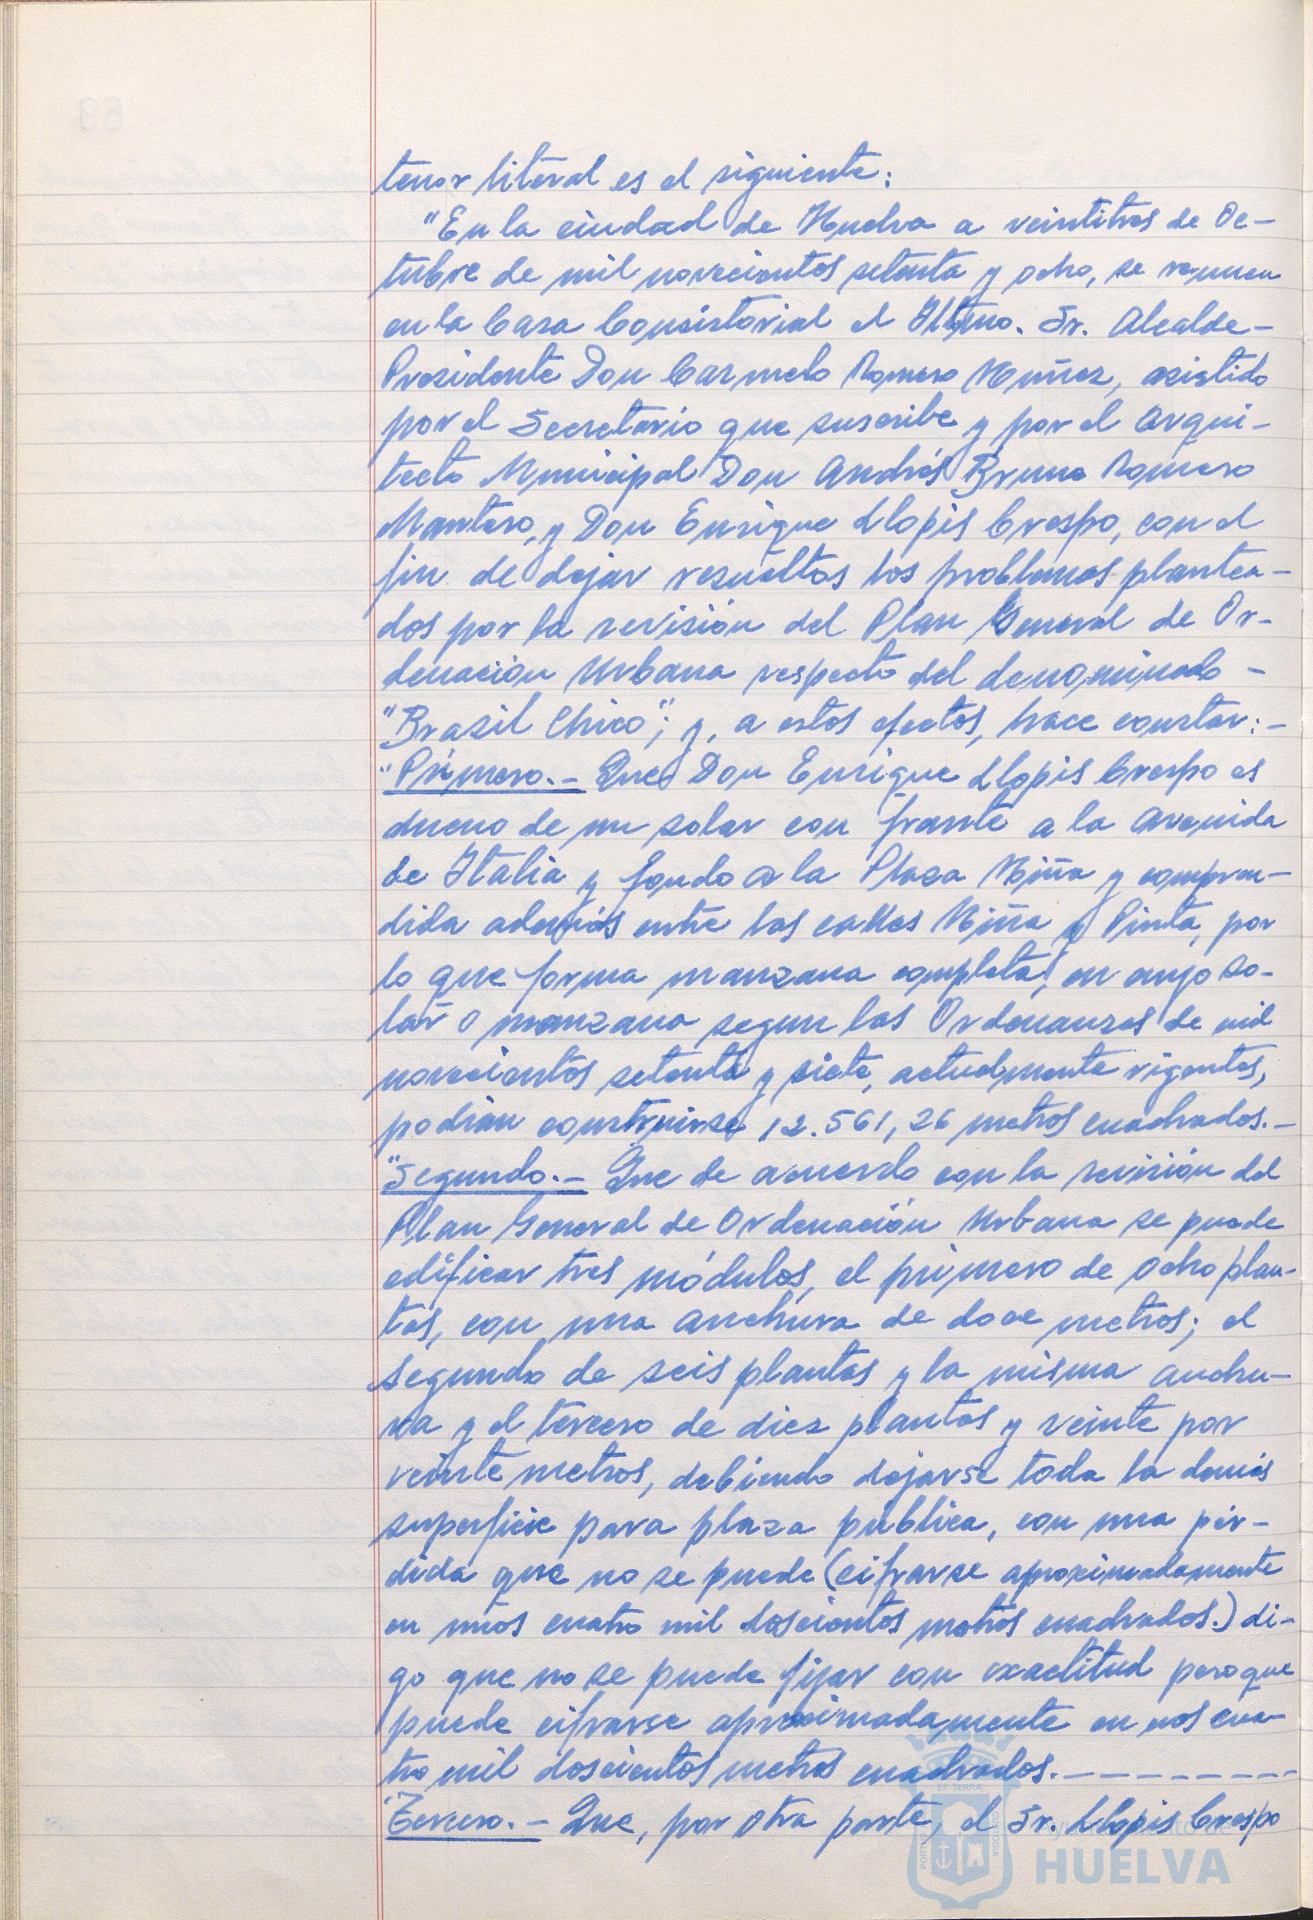 tenor literal es el siguiente:
"En la ciudad de Huelva a veintitres de Oc-
tubre de mil novecientos setenta y ocho, se reunen
en la Casa Consistorial el Iltmo. Sr. Alcalde-
Presidente Don Carmelo Romero Núñez, asistido
por el Secretario que suscribe y por el Arqui-
tecto Municipal Don Andrés Bruno Romero
Mantero, y Don Enrique Llopis Crespo, con el
fin de dejar resueltos los problemas plantea-
dos por la revisión del Plan General de Or-
denación Urbana respecto del denominado -
"Brasil Chico"; y, a estos efectos, hace constar:-
"Primero.- Que Don Enrique Llopis Crespo es
dueno de un solar con frante a la Avenida
de Italia y fondo a la Plaza Niña y compren-
dida además entre las calles Niña y Pinta, por
lo que forma manzana completa, en cuyo so-
lar o manzana segun las Ordenanzas de mil
novecientos setenta y siete, actualmente vigentes,
podrian construirse 12.561,26 metros cuadrados.-
"Segundo.- Que de acuerdo con la revisión del
Plan General de Ordenación Urbana se puede
edificar tres módulos, el primero de ocho plan-
tas, con una anchura de doce metros; el
segundo de seis plantas y la misma anchu-
ra y el tercero de diez plantas y veinte por
veinte metros, debiendo dejarse toda la demás
superficie para plaza pública, con una pér-
dida que no se puede (cifrarse aproximadamente
en unos cuatro mil doscientos metros cuadrados.) di-
go que no se puede fijar con exactitud pero que
puede cifrarse aproximadamente en unos cua-
tro mil doscientos metros cuadrados.- - - - - - - - -
"Tercero.- Que, por otra parte, el Sr. Llopis Crespo
ET TERRA
HUELVA